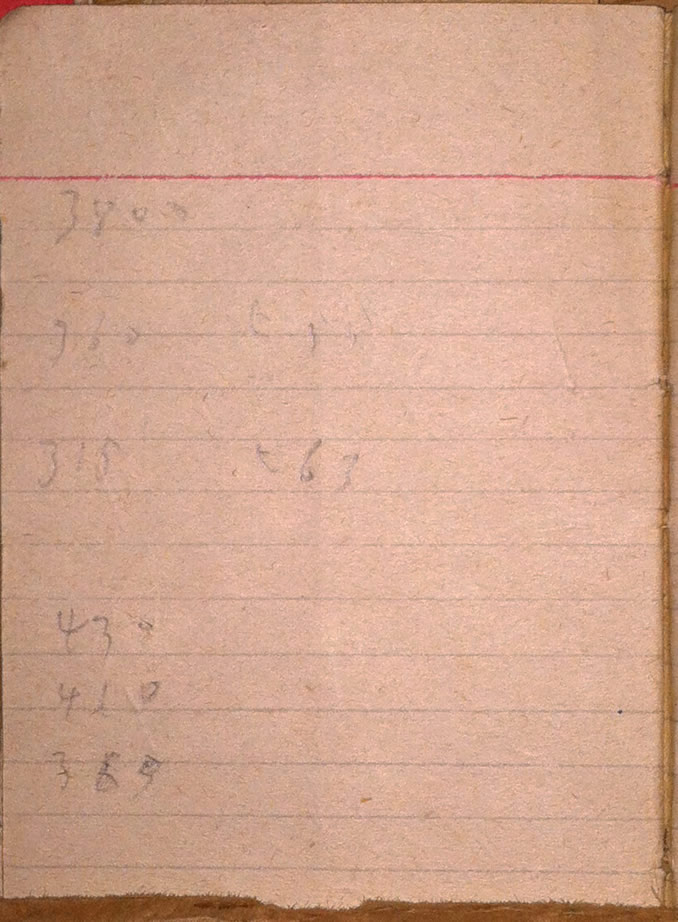 3800
360
318 263
430
410
369